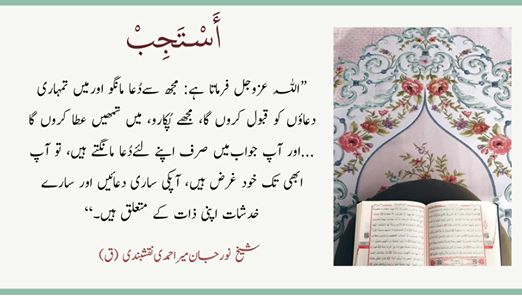 أَسْتَجِبْ
”اللہ عزوجل فرماتا ہے: مجھ سے دُعا مانگو اور میں تمہاری
دعاؤں کو قبول کروں گا، مجھے پُکارو، میں تمھیں عطا کروں گا
...اور آپ جواب میں صرف اپنے لئے دُعا مانگتے ہیں، تو آپ
ابھی تک خود غرض ہیں، آپکی ساری دعائیں اور سارے
خدشات اپنی ذات کے متعلق ہیں۔“
شیخ نورجان میراحمدی نقشبندی (ق)